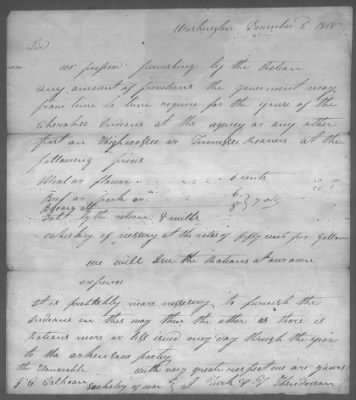 Washington December 6 1818
Sir
we propose furnishing by the Ration
any amount of provisions the government may
from time to time require for the youse of the
Cherokee Indians at the agency or any other
part on Highwassee or Tennessee Reavers at the
following prices
Meal or flower 6 cents
Beef or pork or 6
Salt by the rations 8 mills
whiskey if nessery at the rates of fifty cents per gallon
we will Isue the Rations at our own
expence
it is probbably more nessesary to furnish the
indians in this way than the other as there is
Rations more or less isued every day through the year
to the arkensaw party
the Honorable with very greate respect we are yours
J C Calhoun
Secketary of war